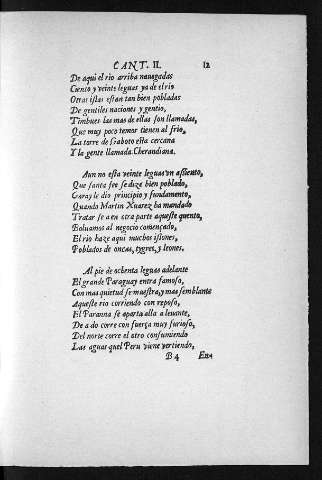 CANT. II. 12
De aqui el rio arriba nauegadas
Ciento y veinte leguas yo de el rio
Otras islas estan tan bien pobladas
De gentiles naciones y gentio,
Timbues las mas de ellas son llamadas,
Que muy poco temor tienen al frio,
La torre de Gaboto està cercana
Y la gente llamada Cherandiana.
Aun no esta veinte leguas vn assiento,
Que santa fee se dize bien poblado,
Garay le dio principio y fundamento,
Quando Martin Xuarez ha mandado
Tratar se a en otra parte aqueste quento,
Boluamos al negocio començado,
El rio haze aqui muchos islones,
Poblados de oncas, tygres, y leones.
Al pie de ochenta leguas adelante
El grande Paraguay entra famoso,
Con mas quietud se muestra, y mas semblante
Aqueste rio corriendo con reposo,
El Parauna se aparta alla a leuante,
De a do corre con fuerça muy furioso,
Del norte corre el otro consumiendo
Las aguas quel Peru viene vertiendo,
B 4